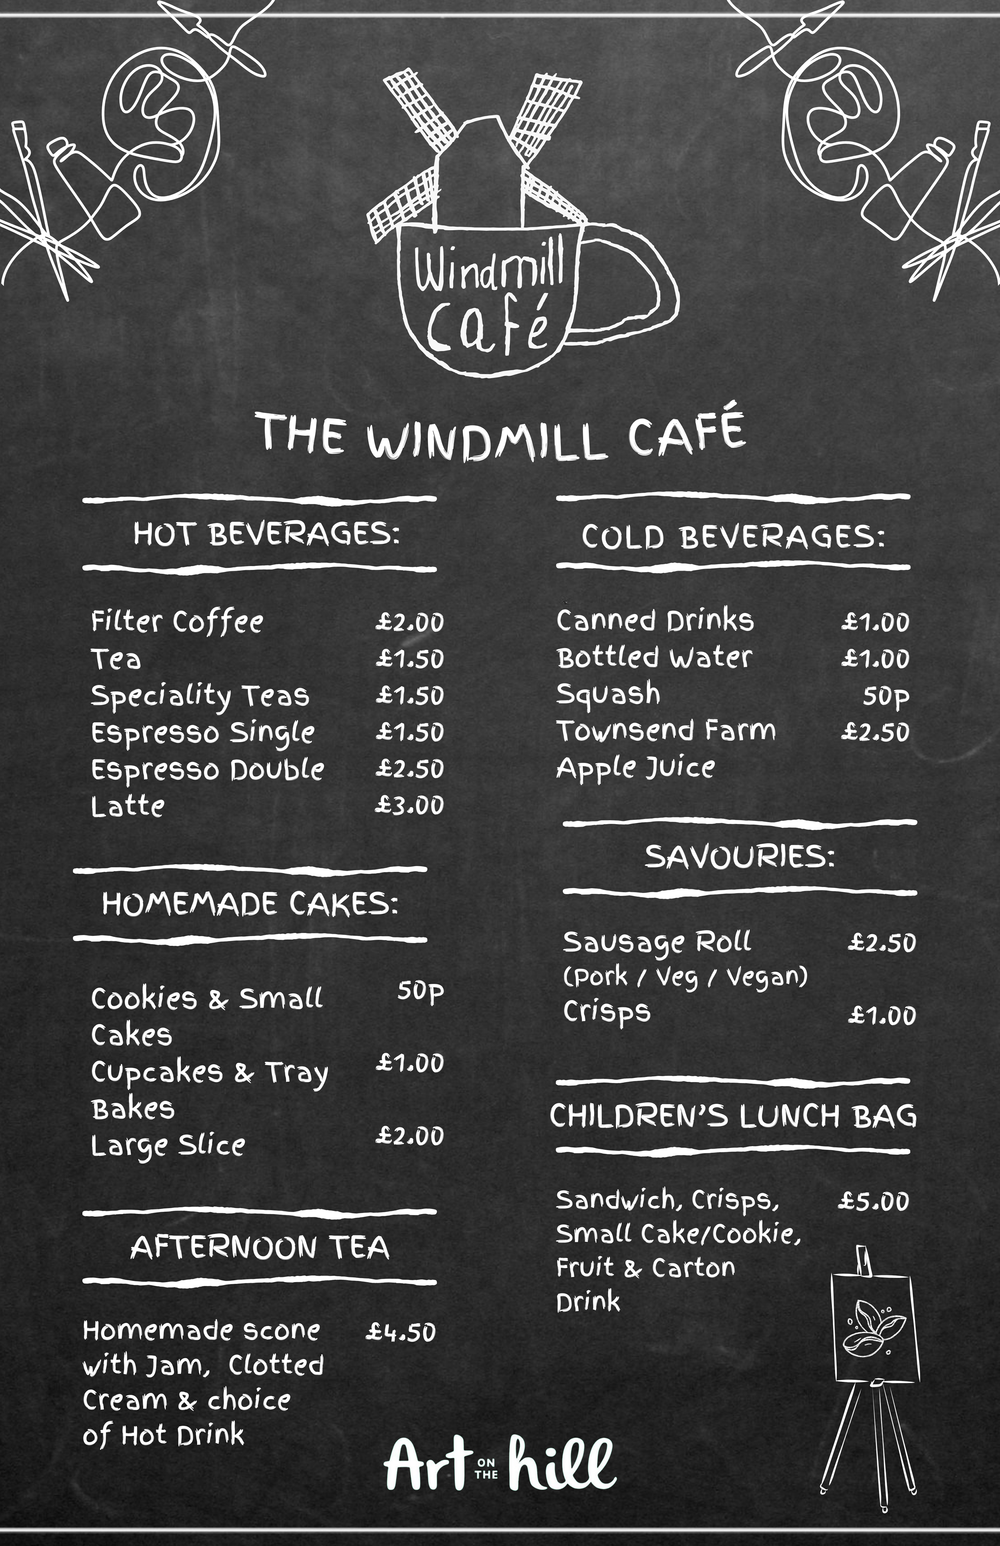 Windmill
Café
THE WINDMILL CAFÉ
HOT BEVERAGES:
Filter Coffee £2.00
Tea £1.50
Speciality Teas £1.50
Espresso Single £1.50
Espresso Double £2.50
Latte £3.00
HOMEMADE CAKES:
Cookies & Small 50p
Cakes
Cupcakes & Tray £1.00
Bakes
Large Slice £2.00
AFTERNOON TEA
Homemade scone £4.50
with Jam, Clotted
Cream & choice
of Hot Drink
COLD BEVERAGES:
Canned Drinks £1.00
Bottled Water £1.00
Squash 50p
Townsend Farm £2.50
Apple Juice
SAVOURIES:
Sausage Roll £2.50
(Pork / Veg / Vegan)
Crisps £1.00
CHILDREN'S LUNCH BAG
Sandwich, Crisps, £5.00
Small Cake/Cookie,
Fruit & Carton
Drink
Art ON THE hill